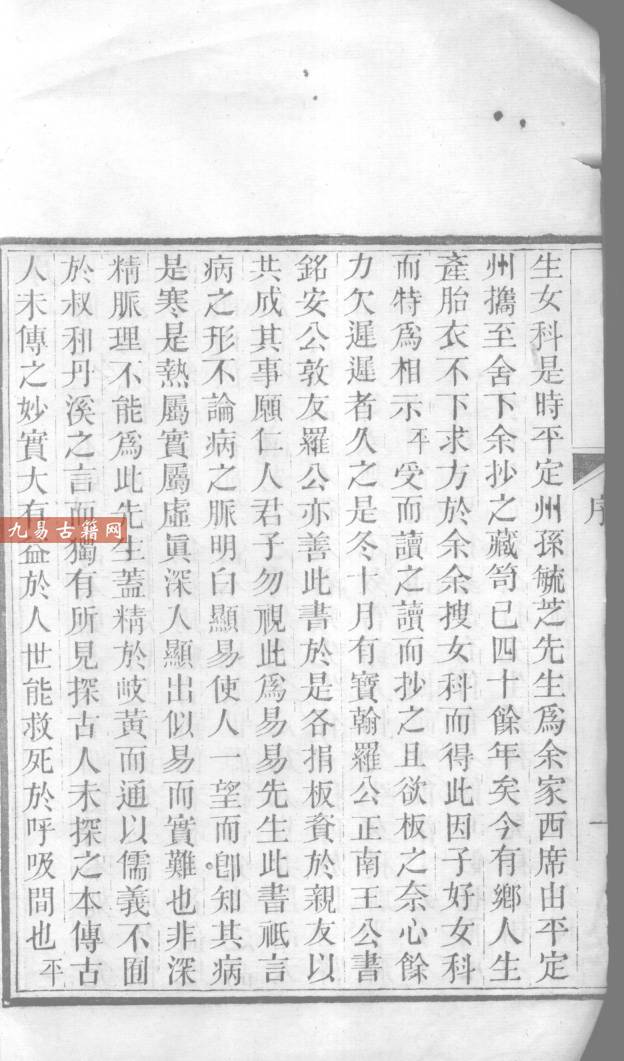 生女科是時平定州孫毓芝先生爲余家西席由平定
州攜至舍下余抄之藏笥已四十餘年矣今有鄉人生
產胎衣不下求方於余余搜女科而得此因子好女科
而特爲相示平受而讀之讀而抄之且欲板之奈心餘
力欠遲遲者久之是冬十月有寶翰羅公正南王公書
銘安公敦友羅公亦善此書於是各捐板資於親友以
共成其事願仁人君子勿視此爲易易先生此書祇言
病之形不論病之脈明白顯易使人一望而卽知其病
是寒是熱屬實屬虛眞深人顯出似易而實難也非深
精脈理不能爲此先生蓋精於岐黃而通以儒義不囿
於叔和丹溪之言而獨有所見探古人未探之本傳古
人未傳之妙實大有益於人世能救死於呼吸間也平
序
一
九易古籍网